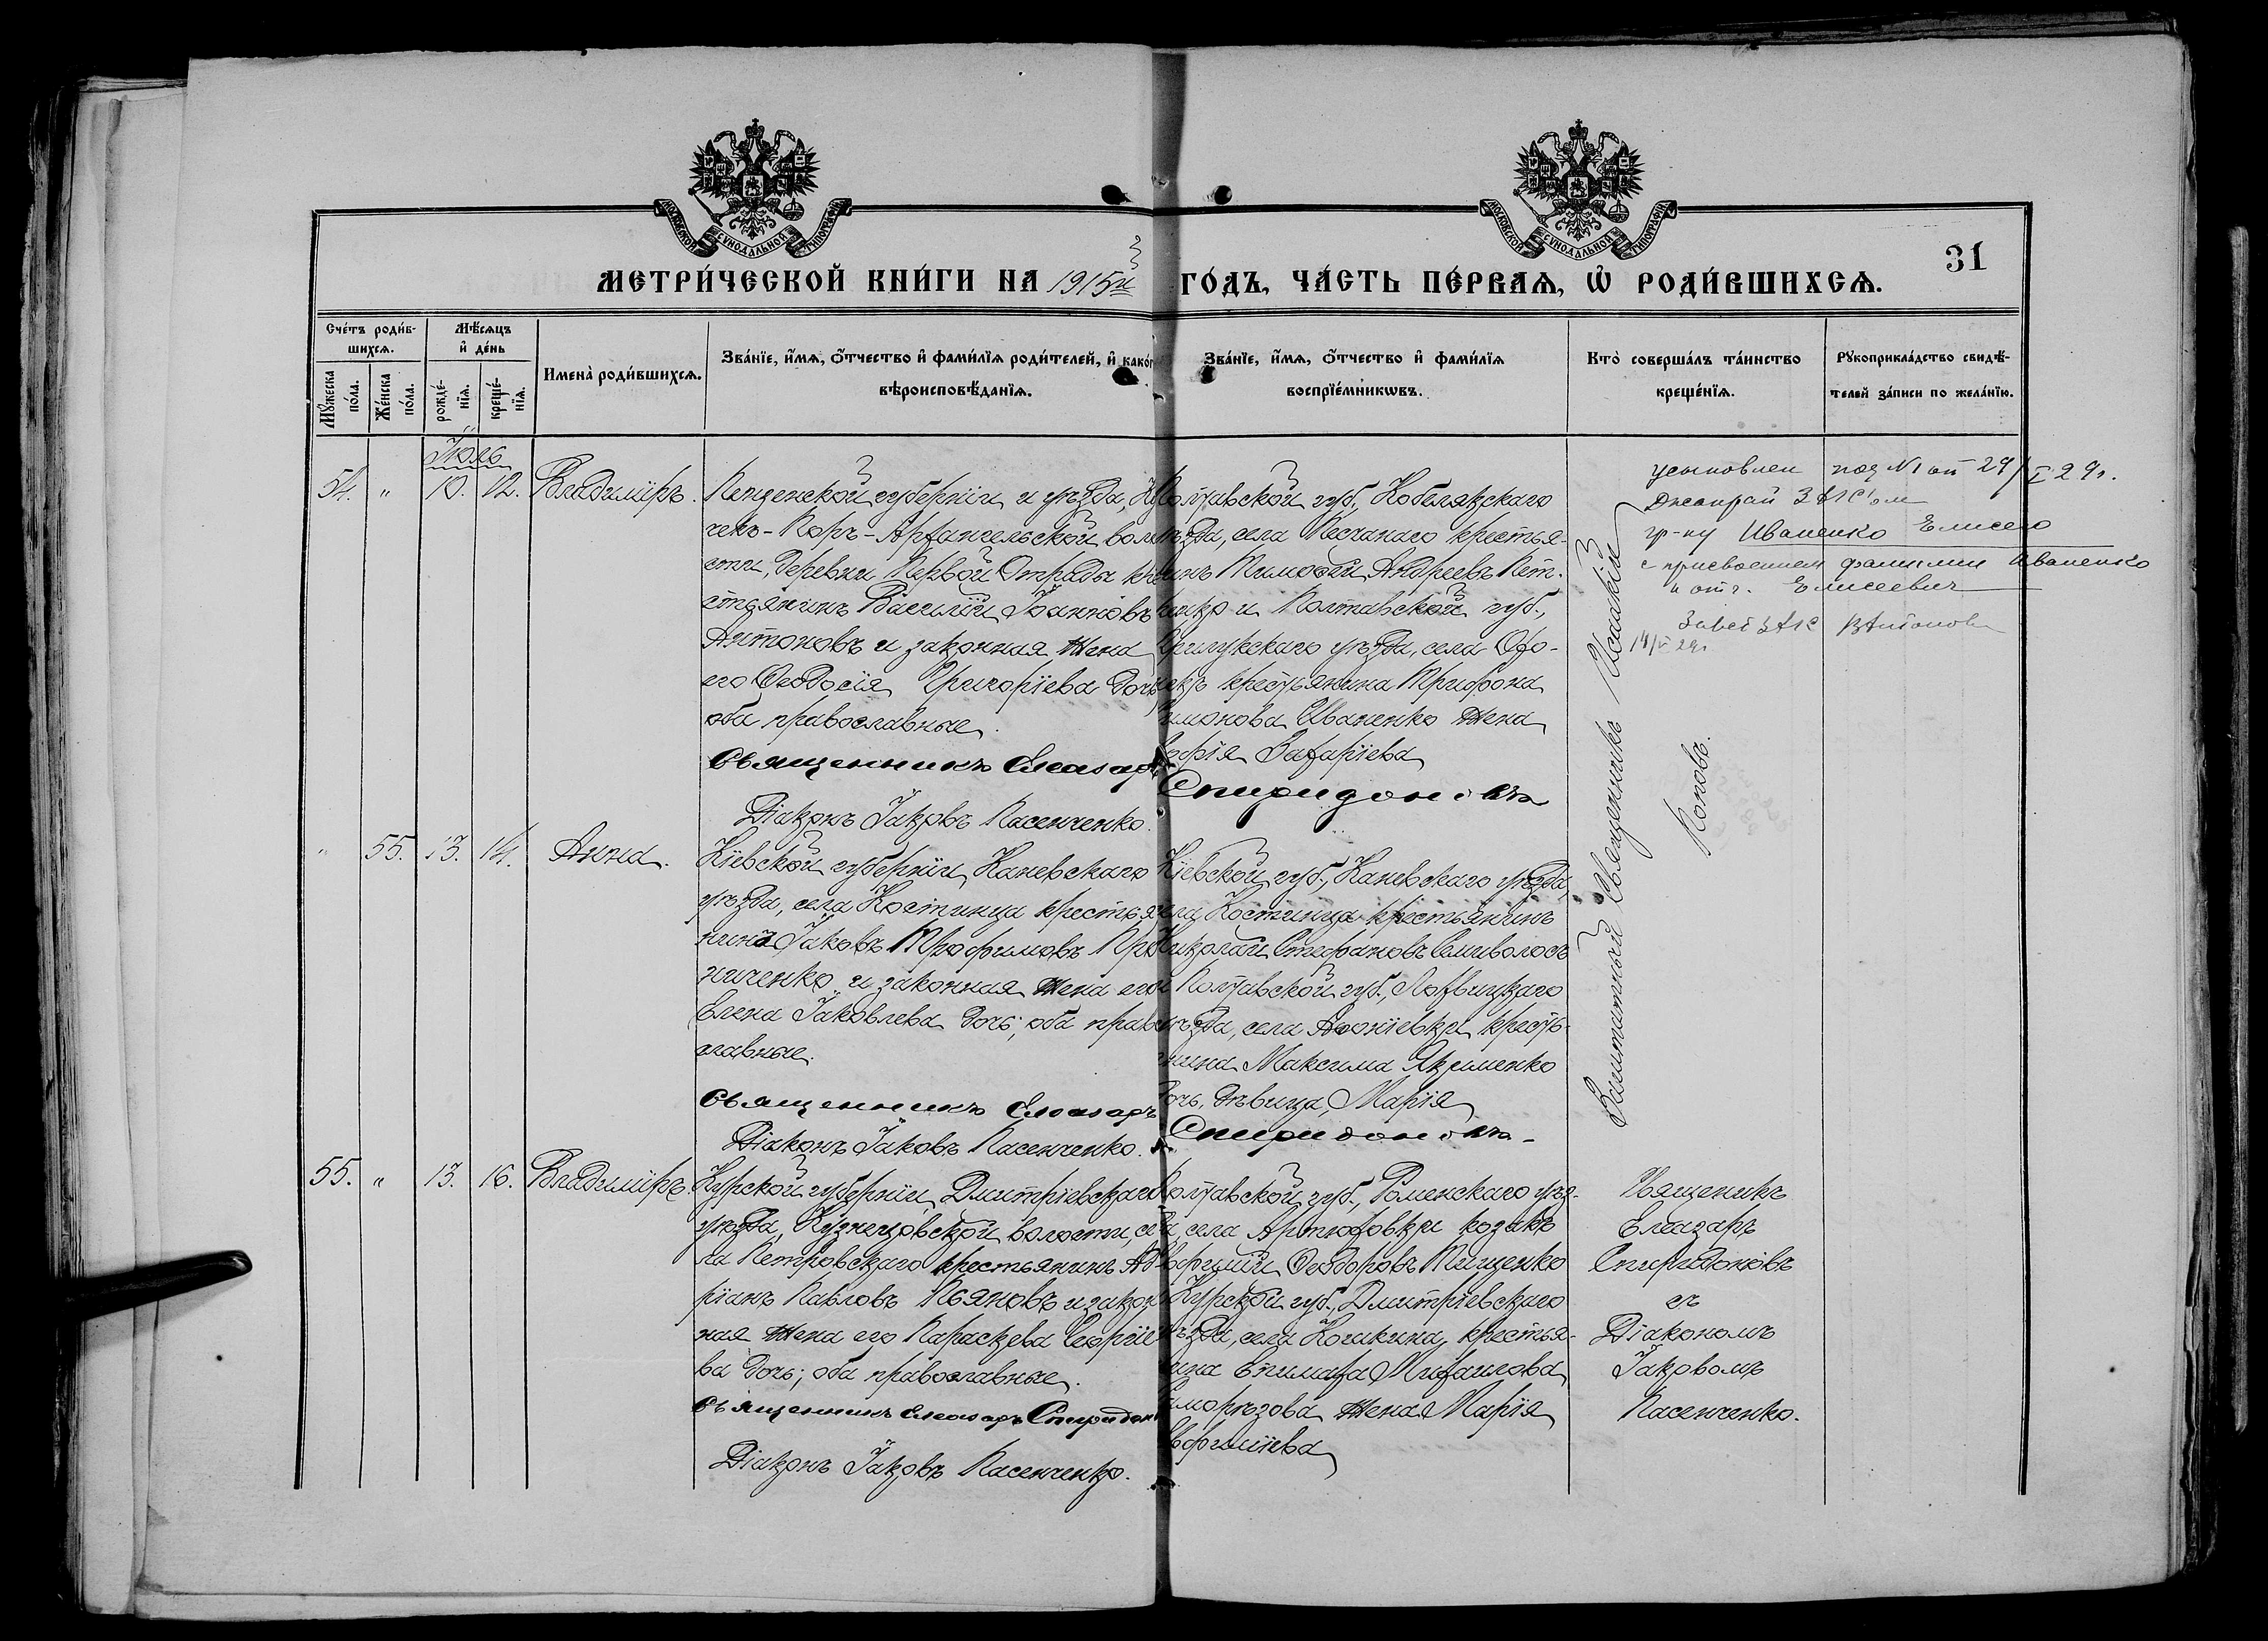 МЕТРИ́ЧЕСКОЙ КНИ́ГИ НА 1915й ГО́ДЪ, ЧА́СТЬ ПЕ́РВАѦ, Ѡ҆ РОДИ́ВШИХСѦ.
31
Сче́тъ роди́в-
шихсѧ.
Мꙋ́жеска по́ла.
Же́нска по́ла.
Мѣ́сѧцъ
и҆ де́нь
рожде́-
нїѧ.
креще́-
нїѧ.
И҆мена̀ роди́вшихсѧ.
Зва́нїе, и҆́мѧ, ѻ҆́тчество и҆ фами́лїѧ роди́телей, и҆ како́г
вѣроисповѣ́данїѧ.
Зва́нїе, и҆́мѧ, ѻ҆́тчество и҆ фами́лїѧ
воспрїе́мникѡвъ.
Кто̀ соверша́лъ та́инство
креще́нїѧ.
Рꙋкоприкла́дство свидѣ́-
телей за́писи по жела́нїю.
Іюль
54. " 10. 12. Владиміръ.
Пензенской губерніи и уѣзда,
чек-Пор-Архангельской воло
сти, деревни Первой Отрады кре
стьянинъ Василій Іоанновъ
Антоновъ и законная жена
его Ѳеодосія Григоріева дочь
оба православные.
Священникъ Елеазаръ
Діаконъ Іаковъ Пасенченко.
Полтавской губ., Кобелякскаго
уѣзда, села Песчанаго крестья-
нинъ Тимоѳей Андреевъ Пет-
ренко и Полтавской губ.,
Прилукскаго уѣзда, села
крестьянина Трифона
Симонова Иваненко жена
Софія Захаріева
Спиридоновъ
Заштатный Священникъ Исаакій
Поповъ.
усыновлен под №1 от 29/I 29г.
ЗАГС'ом
гр-ну Иваненко Елисею
с присвоением фамилии Иваненко
и отч. Елисеевич
ЗАГС ВАнтонов
" 55. 13. 14. Анна.
Кіевской губерніи, Каневскаго
уѣзда, села Костинца крестья
нинъ Іаковъ Трофимовъ Про
ниченко и законная жена его
Елена Іаковлева дочь; оба право
славные.
Священникъ Елеазаръ
Діаконъ Іаковъ Пасенченко.
Кіевской губ., Каневскаго уѣзда,
села Костинца крестьянинъ
Николай Стефановъ Семиволосъ
и Полтавской губ., Лохвицкаго
уѣзда, села крестья-
нина Максима Якименко
дочь, дѣвица, Марія
Спиридоновъ
55. " 13. 16. Владиміръ
Курской губерніи, Дмитріевскаго
уѣзда, Кузнецовской волости, се
ла Петровскаго крестьянинъ Ад
ріанъ Павловъ Пьяновъ и закон
ная жена его Параскева Георгіе
ва дочь; оба православные.
Священникъ Елеазаръ Спиридон
Діаконъ Іаковъ Пасенченко.
Полтавской губ., Роменскаго уѣз-
да, села Артюховки козакъ
Ѳеодоровъ Тищенко
и Курской губ., Дмитріевскаго
уѣзда, села крестья-
нина Михаилова
жена Марія
Священникъ
Елеазаръ
Спиридоновъ
съ
Діакономъ
Іаковомъ
Пасенченко.